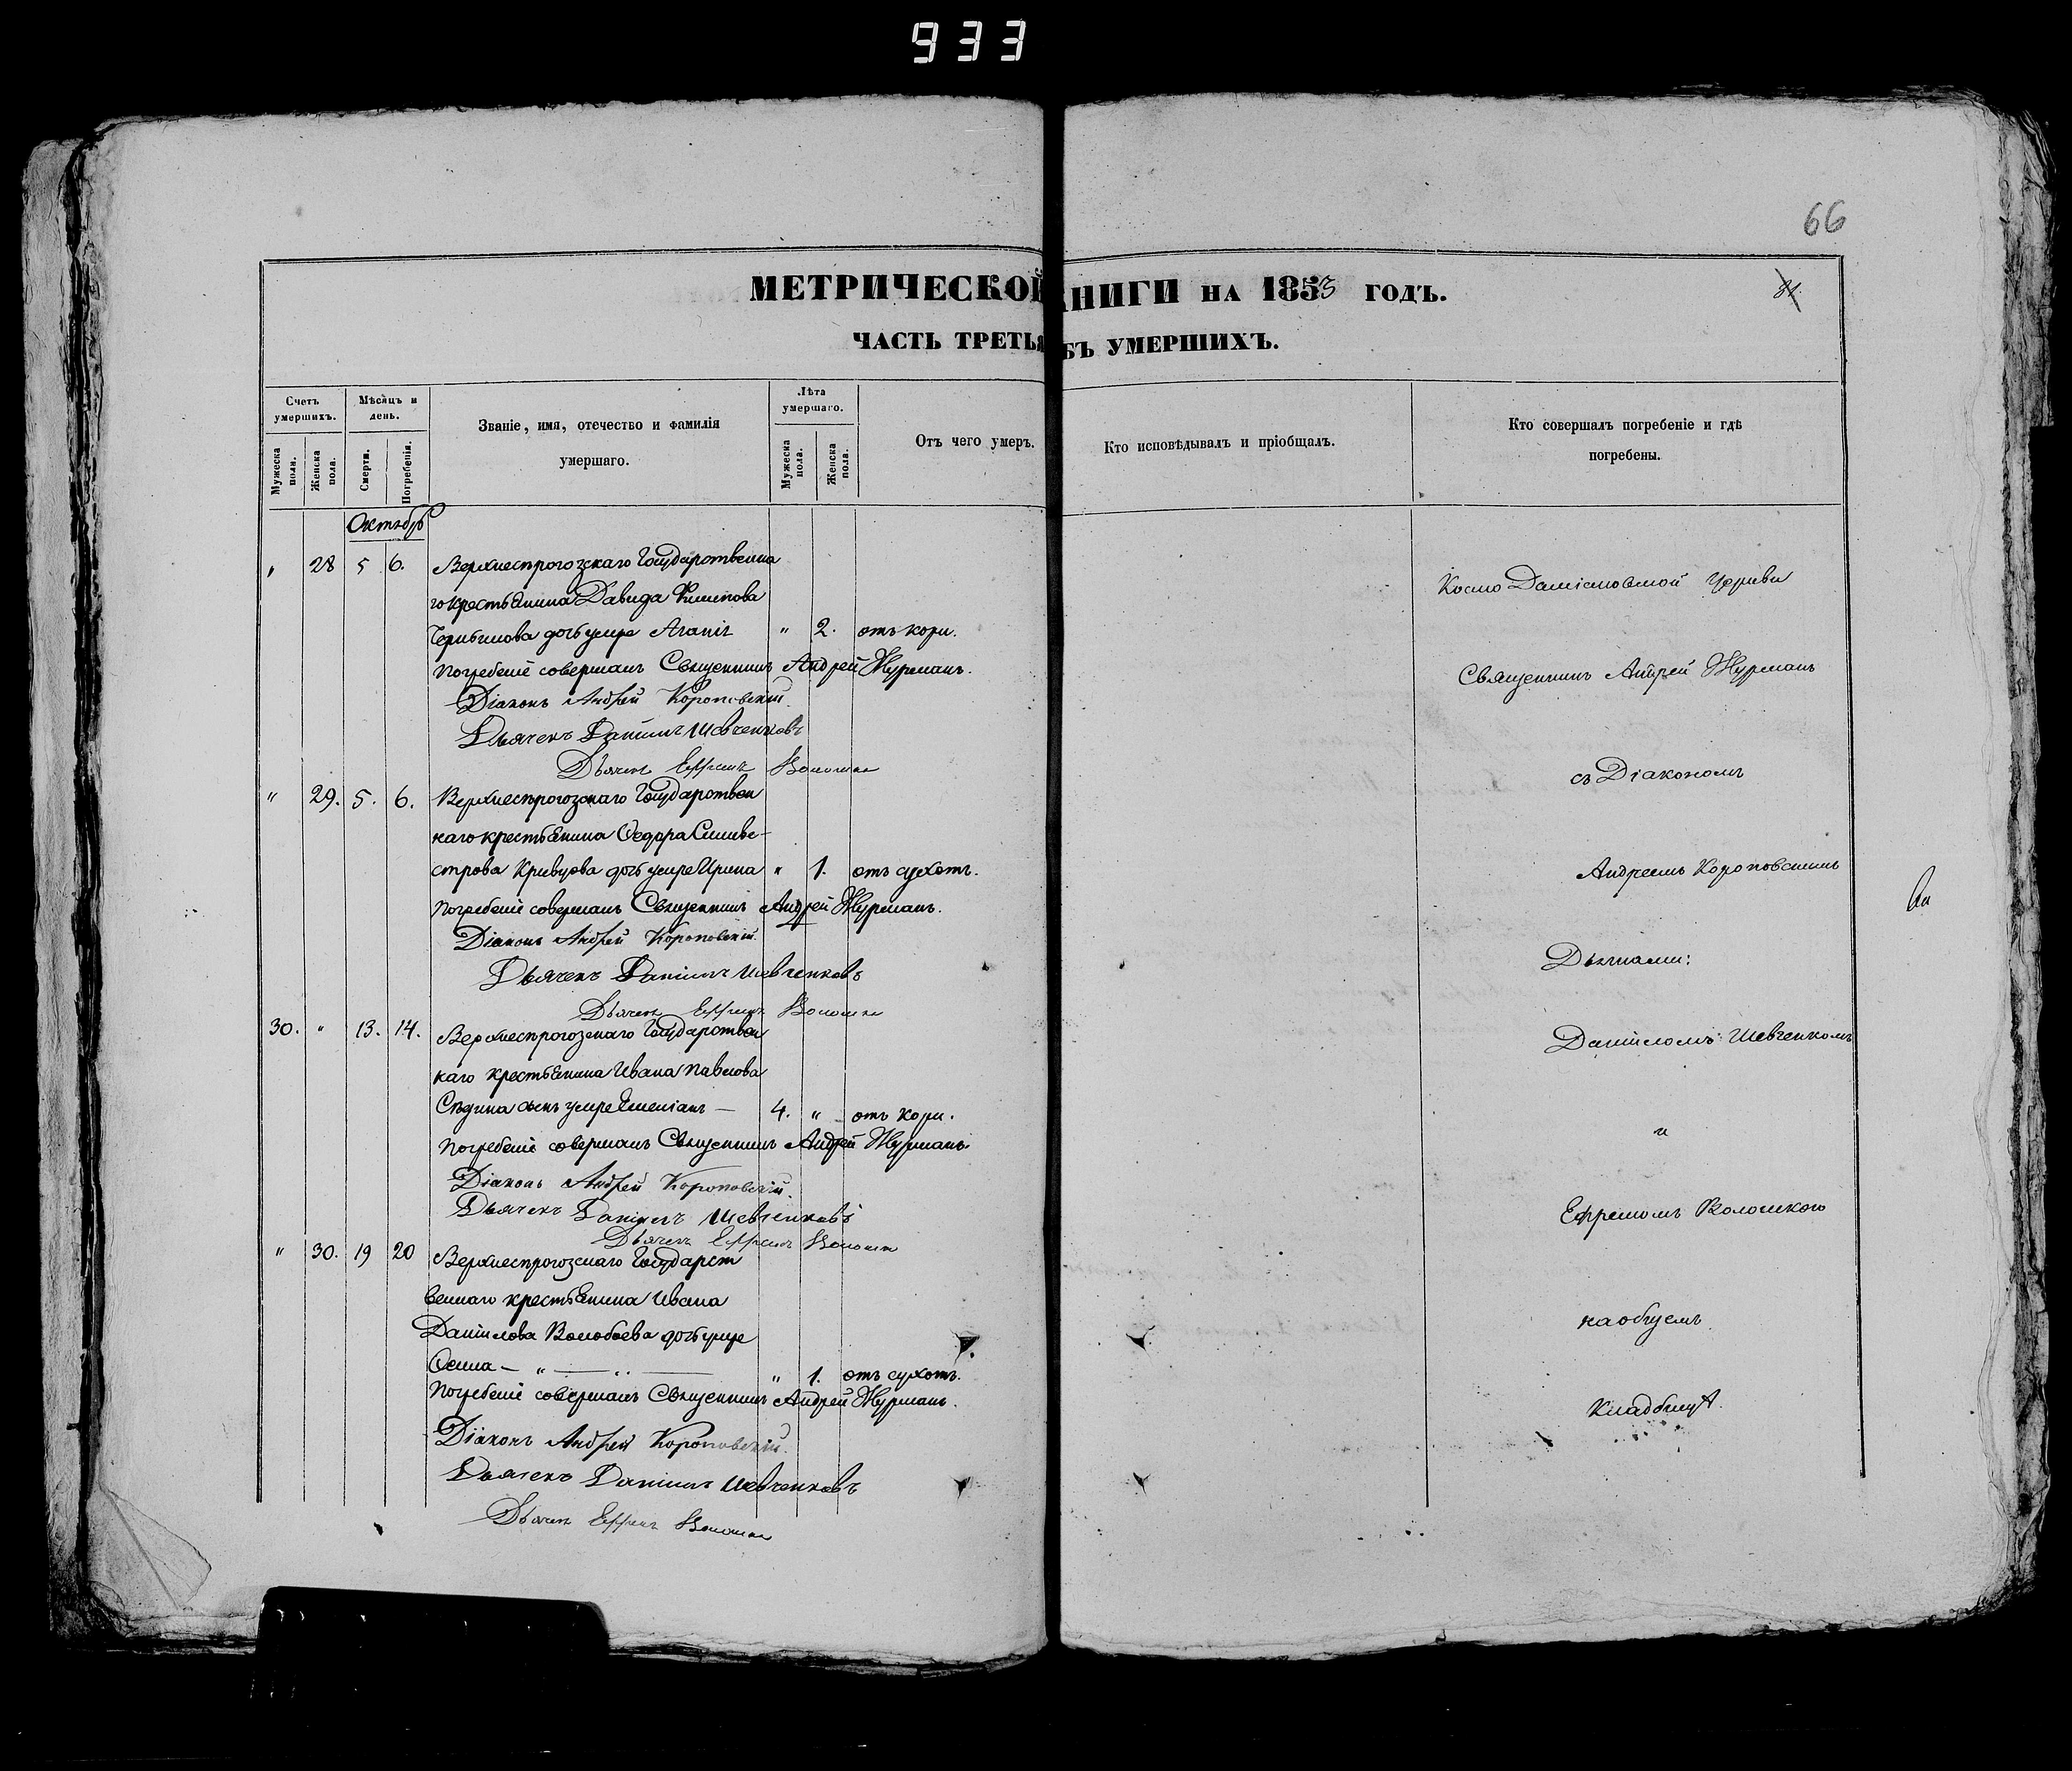 933
66
МЕТРИЧЕСКОЙ КНИГИ НА 1853 ГОДЪ.
81
ЧАСТЬ ТРЕТЬЯ БЪ УМЕРШИХЪ.
Счетъ умершихъ.
Мѣсяцъ и день.
Званіе, имя, отечество и фамилія умершаго.
Лѣта умершаго.
Отъ чего умеръ.
Кто исповѣдывалъ и пріобщалъ.
Кто совершалъ погребеніе и гдѣ погребены.
Мужеска пола.
Женска пола.
Смерти.
Погребенія.
Мужеска пола.
Женска пола.
Октябрь
" 28 5 6. Верхнесрогозскаго Государственна
го крестьянина Давида Филипова
дочь умре Агапія " 2. отъ кори.
Погребеніе совершалъ Священникъ Андрей Журманъ.
Діаконъ Андрей Короповскій.
Дьячекъ Даніилъ Шевченковъ
Дьячекъ Ефремъ Волошко
" 29. 5. 6. Верхнесрогозскаго Государствен
наго крестьянина Ѳедора Силиве-
строва Кривцова дочь умре Ирина " 1. отъ сухотъ.
Погребеніе совершалъ Священникъ Андрей Журманъ.
Діаконъ Андрей Короповскій.
Дьячекъ Даніилъ Шевченковъ
Дьячекъ Ефремъ Волошко
30. " 13. 14. Верхнесрогозскаго Государствен
наго крестьянина Ивана Павлова
Сѣдина сынъ умре Емеліанъ — 4. " отъ кори.
Погребеніе совершалъ Священникъ Андрей Журманъ
Діаконъ Андрей Короповскій.
Дьячекъ Даніилъ Шевченковъ
Дьячекъ Ефремъ Волошко
" 30. 19 20 Верхнесрогозскаго Государст
веннаго крестьянина Ивана
Даніилова Волобоева дочь умре
" 1. отъ сухотъ.
Погребеніе совершалъ Священникъ Андрей Журманъ.
Діаконъ Андрей Короповскій.
Дьячекъ Даніилъ Шевченковъ
Дьячекъ Ефремъ Волошко
Космо Даміановской Церкви
Священникъ Андрей Журманъ
съ Діакономъ
Андреемъ Короповскимъ
Дьячками:
Даніиломъ Шевченкомъ
и
Ефремомъ Волошкою
на общемъ
кладбищѣ.